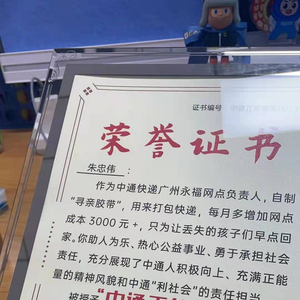 证书编号
荣誉证书
朱忠伟：
作为中通快递广州永福网点负责人，自制
“寻亲胶带”，用来打包快递，每月多增加网点
成本 3000 元 +，只为让丢失的孩子们早点回
家。你助人为乐、热心公益事业、勇于承担社会
责任，充分展现了中通人积极向上、充满正能
量的精神风貌和中通“利社会”的责任担当。
被授予“中通